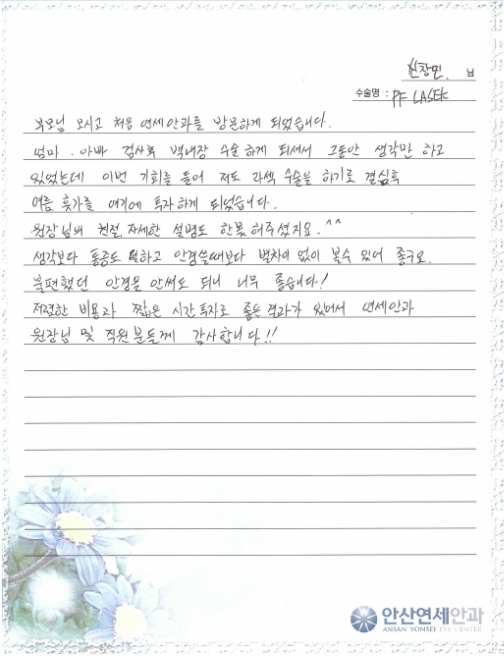 신창민 님
수술명 : PF LASEK
부모님 모시고 처음 연세안과를 방문하게 되었습니다.
엄마·아빠 검사후 백내장 수술하게 되셔서 그동안 생각만 하고
있었는데 이번 기회를 들어 저도 라섹 수술을 하기로 결심후
여름 휴가를 여기에 투자하게 되었습니다.
원장님의 친절, 자세한 설명도 한몫 해주셨지요. ^^
생각보다 통증도 덜하고 안경쓸때보다 별차이 없이 볼수 있어 좋구요.
불편했던 안경을 안써도 되니 너무 좋습니다!
저렴한 비용과 짧은 시간투자로 좋은 결과가 있어서 연세안과
원장님 및 직원분들께 감사합니다!!
안산연세안과
ANSAN YONSEI EYE CENTER